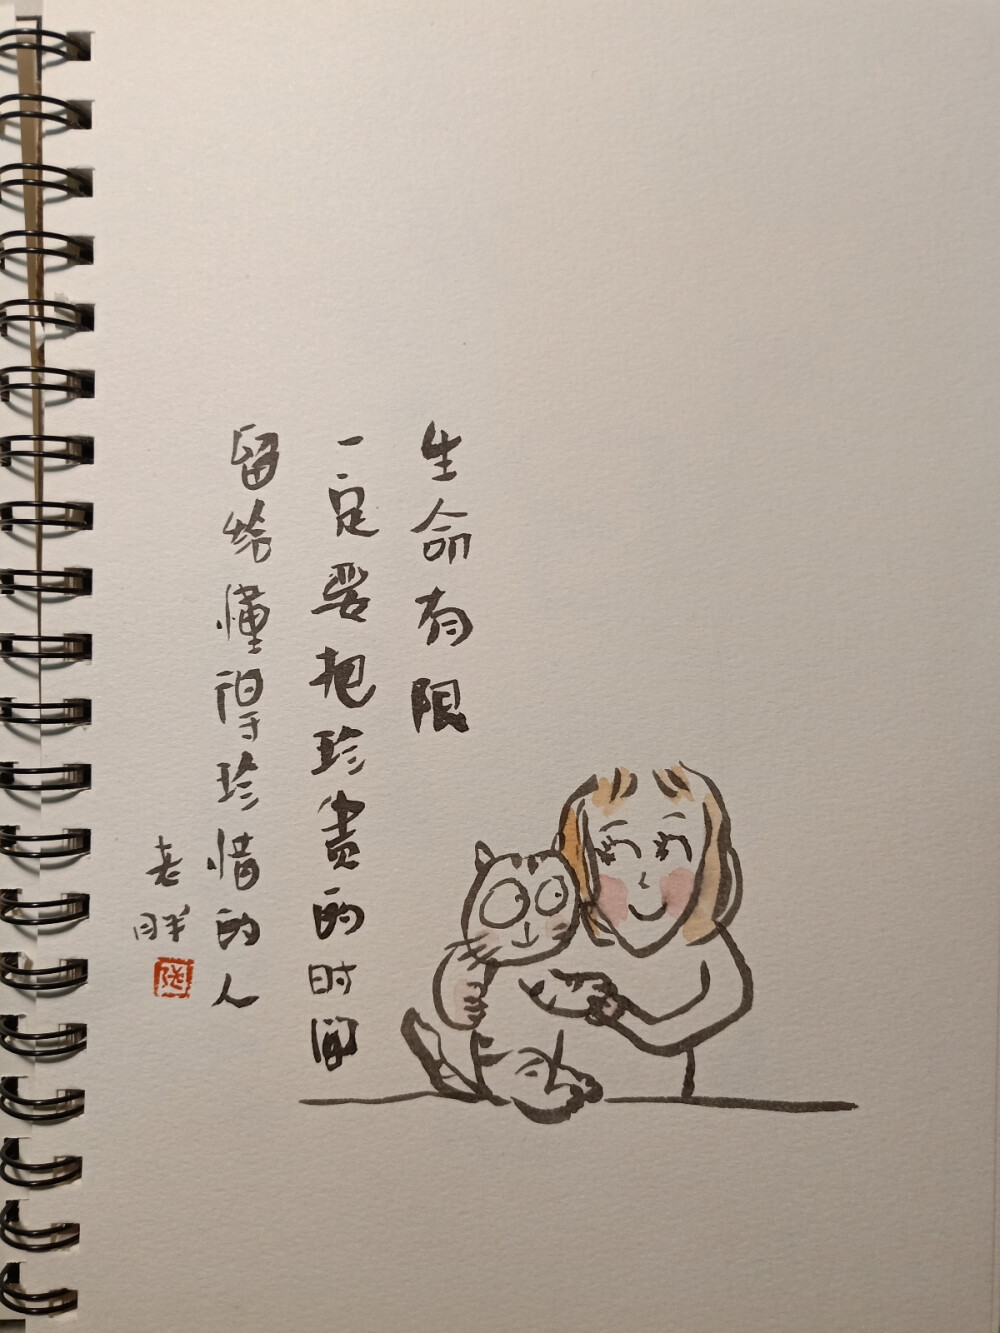 生命有限
一定要把珍贵的时间
留给懂得珍惜的人
老胖